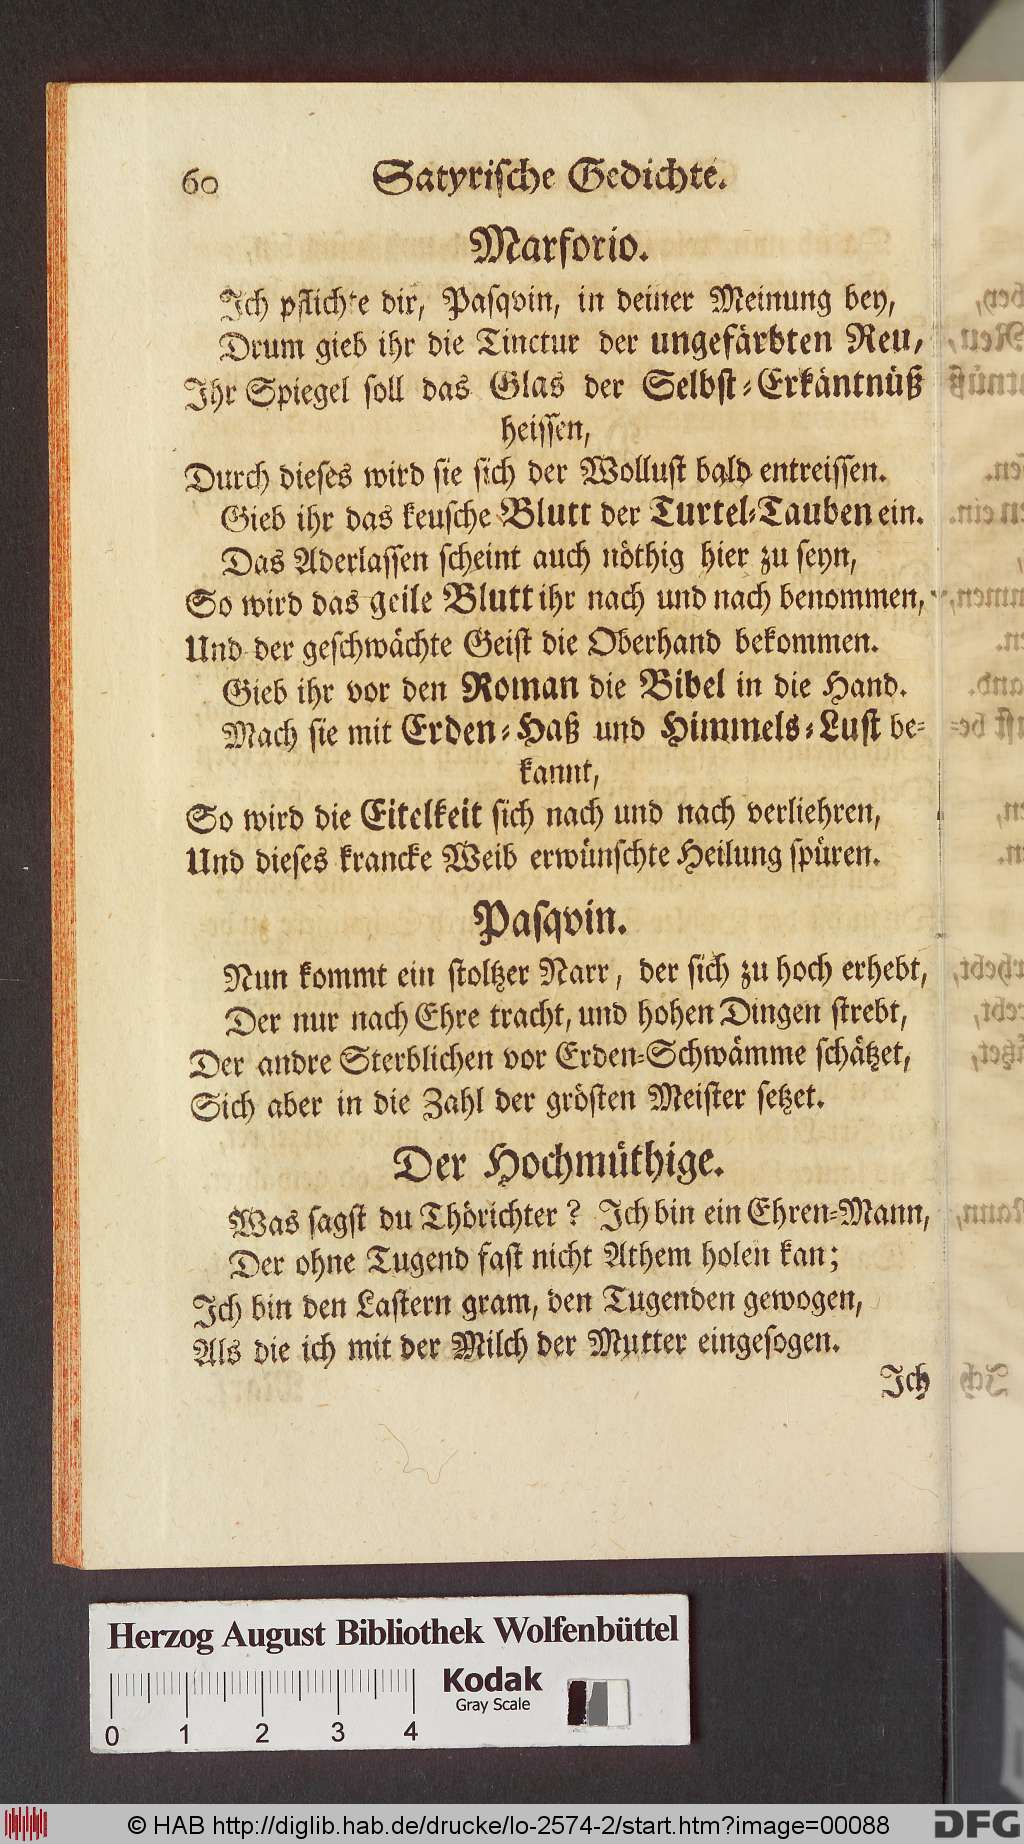 60 Satyrische Gedichte.
Marforio.
Ich pflichte dir, Pasqvin, in deiner Meinung bey,
Drum gieb ihr die Tinctur der ungefärbten Reu,
Ihr Spiegel soll das Glas der Selbst-Erkäntnüß
heissen,
Durch dieses wird sie sich der Wollust bald entreissen.
Gieb ihr das keusche Blutt der Turtel-Tauben ein.
Das Aderlassen scheint auch nöthig hier zu seyn,
So wird das geile Blutt ihr nach und nach benommen,
Und der geschwächte Geist die Oberhand bekommen.
Gieb ihr vor den Roman die Bibel in die Hand.
Mach sie mit Erden-Haß und Himmels-Lust be-
kannt,
So wird die Eitelkeit sich nach und nach verliehren,
Und dieses krancke Weib erwünschte Heilung spüren.
Pasqvin.
Nun kommt ein stoltzer Narr, der sich zu hoch erhebt,
Der nur nach Ehre tracht, und hohen Dingen strebt,
Der andre Sterblichen vor Erden-Schwämme schätzet,
Sich aber in die Zahl der grösten Meister setzet.
Der Hochmüthige.
Was sagst du Thörichter? Ich bin ein Ehren-Mann,
Der ohne Tugend fast nicht Athem holen kan;
Ich bin den Lastern gram, den Tugenden gewogen,
Als die ich mit der Milch der Mutter eingesogen.
Ich
Herzog August Bibliothek Wolfenbüttel
Kodak
Gray Scale
0 1 2 3 4
© HAB http://diglib.hab.de/drucke/lo-2574-2/start.htm?image=00088
DFG